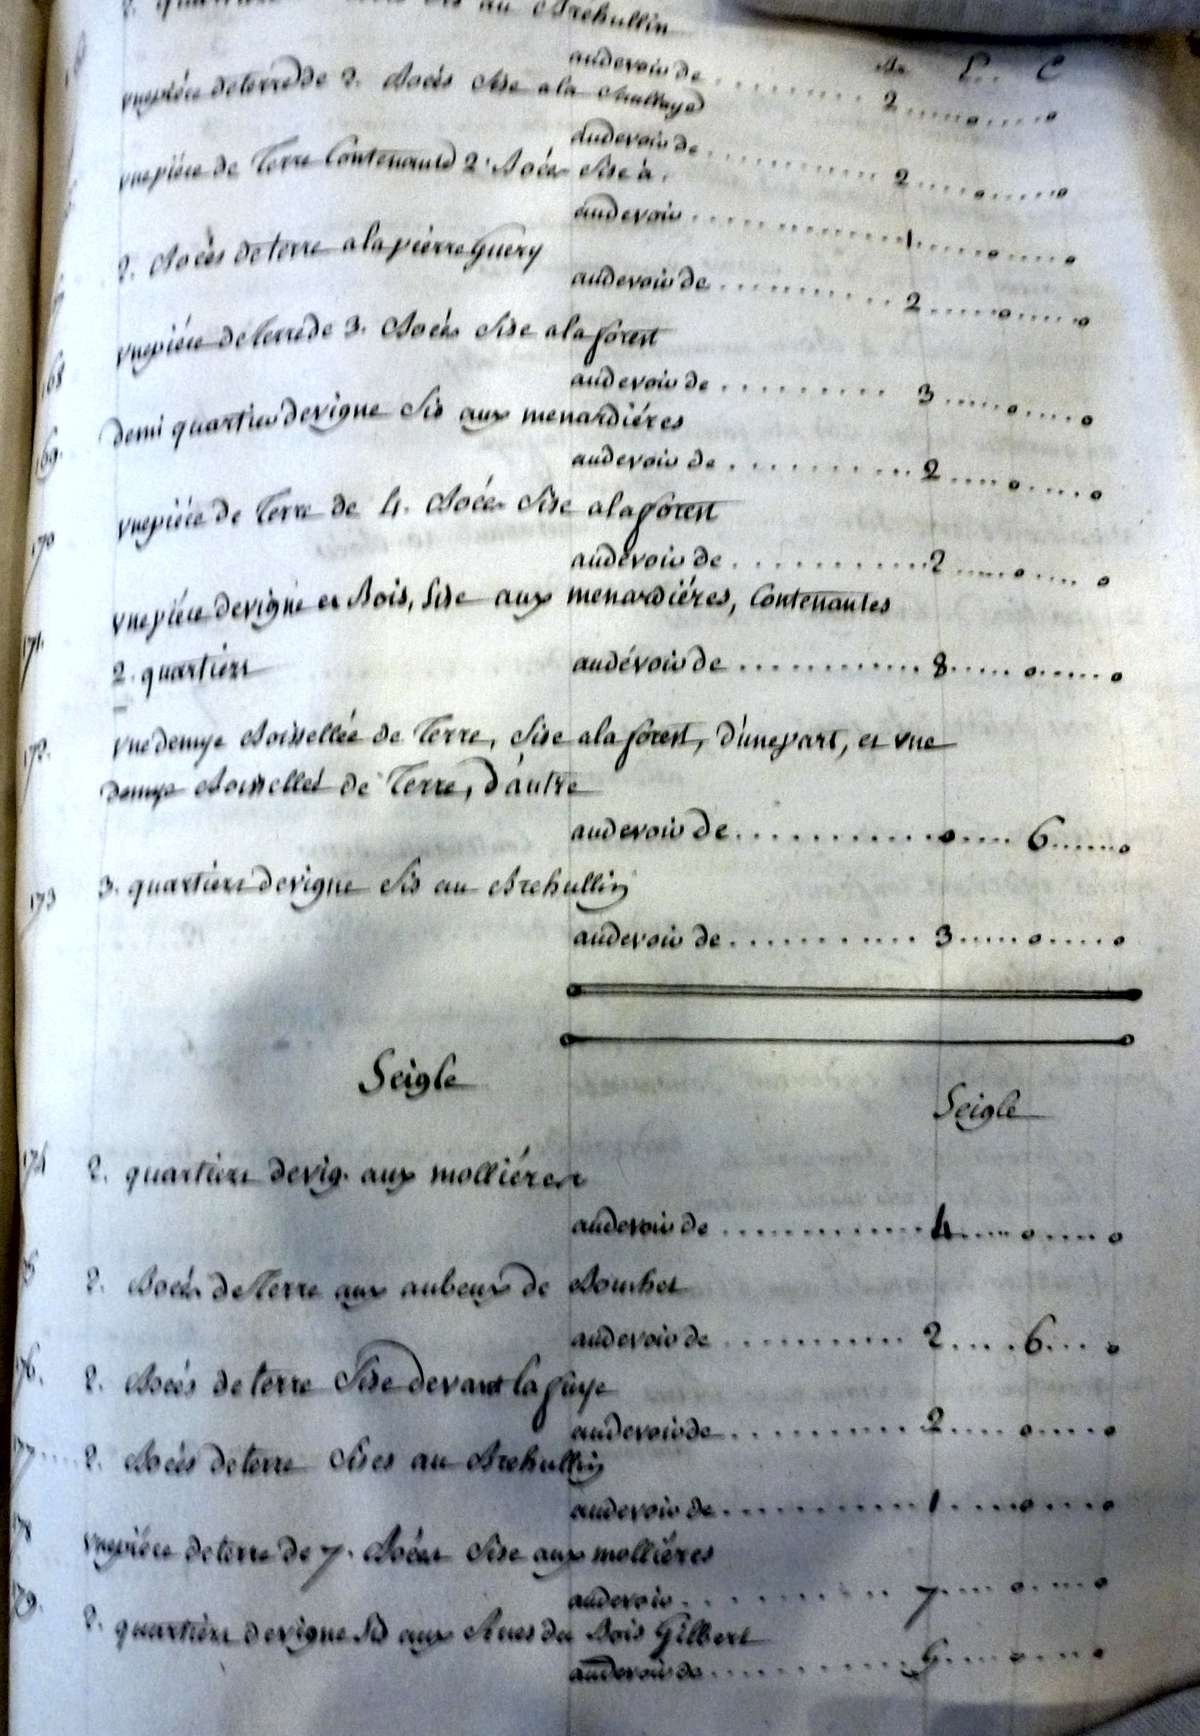 2. quartiers sis au Brehullin
au devoir de ........ 2 ..... o ..... o
B. E.. C
une piéce de terre de 2. Boées sise a la
au devoir de ........ 2 ..... o ..... o
une piéce de Terre Contenante 2. Boées sise à.
au devoir ........ 1 ..... o ..... o
2. Boeés de terre a la pierre Guery
au devoir de ........ 2 ..... o ..... o
168 une piéce de terre de 3. Boées sise a la forest
au devoir de ........ 3 ..... o ..... o
169. demi quartier de vigne sis aux menardiéres
au devoir de ........ 2 ..... o ..... o
170 une piéce de Terre de 4. Boées sise a la forest
au devoir de ........ 2 ..... o ..... o
171. une piéce de vigne et Bois, sise aux menardiéres, Contenantes
2. quartiers au dévoir de ........ 8 ..... o ..... o
172. une demye Boissellée de Terre, sise a la forest, d'une part, et une
demye Boissellée de Terre, d'autre
au devoir de ........ o .... 6 ..... o
173 3. quartiers de vigne sis au Brehullin
au devoir de ........ 3 ..... o ..... o
Seigle
Seigle
174 2. quartiers de vig. aux molliéres
au devoir de ........ 4 ..... o ..... o
2. Boées de Terre aux aubeux de Bouchet
au devoir de ........ 2 ..... 6 .... o
176. 2. Boeés de terre sise devant la fuye
au devoir de ........ 2 ..... o ..... o
177 .... 2. Boeés de terre sises au Brehullin
au devoir de ........ 1 ..... o ..... o
178 une piéce de terre de 7. Boées sise aux molliéres
au devoir ........ 7 ..... o ..... o
179. 2. quartiers de vigne sis aux du Bois Gilbert
au devoir de ........ ..... o ..... o